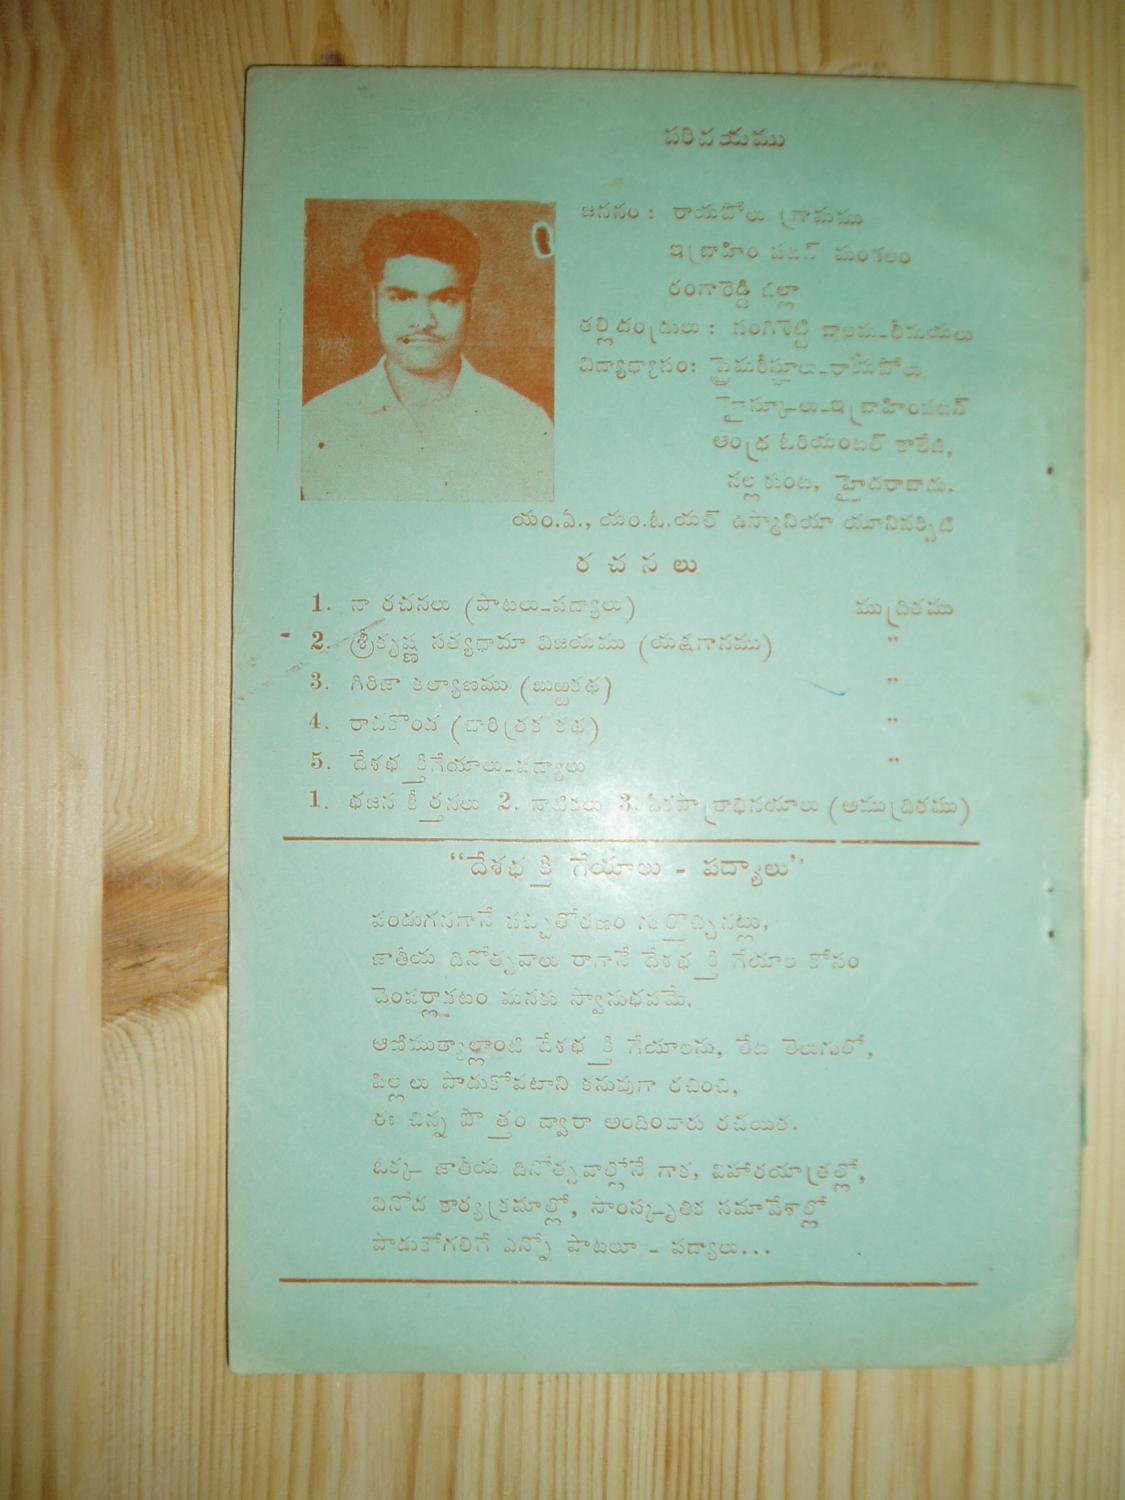 పరిచయము
జననం : రాయపోలు గ్రామము
ఇబ్రాహీం పటన్ మండలం
రంగారెడ్డి జిల్లా
తల్లిదండ్రులు : సంగిశెట్టి బాలమ-భీమయలు
విద్యాభ్యాసం: ప్రైమరీస్కూలు-రాయపోలు
హైస్కూలు-ఇబ్రాహింపటన్
ఆంధ్ర ఓరియంటల్ కాలేజి,
నల్లకుంట, హైదరాబాదు.
యం.ఏ., యం.ఓ.యల్ ఉస్మానియా యూనివర్సిటి
రచనలు
1. నా రచనలు (పాటలు-పద్యాలు) ముద్రితము
2. శ్రీకృష్ణ సత్యభామా విజయము (యక్షగానము) ”
3. గిరిజా కల్యాణము (బుఱ్ఱకథ) ”
4. రాచకొండ (చారిత్రక కథ) ”
5. దేశభక్తిగేయాలు-పద్యాలు ”
1. భజన కీర్తనలు 2. నాటికలు 3. ఏకపాత్రాభినయాలు (అముద్రితము)
“దేశభక్తి గేయాలు - పద్యాలు”
పండుగనగానే పచ్చతోరణం గుర్తొచ్చినట్లు,
జాతీయ దినోత్సవాలు రాగానే దేశభక్తి గేయాల కోసం
వెంపర్లాడటం మనకు స్వానుభవమే.
ఆణిముత్యాల్లాంటి దేశభక్తి గేయాలను, తేట తెలుగులో,
పిల్లలు పాడుకోవటాని కనువుగా రచించి,
ఈ చిన్న పొత్తం ద్వారా అందించారు రచయిత.
ఒక్క జాతీయ దినోత్సవాల్లోనే గాక, విహారయాత్రల్లో,
వినోద కార్యక్రమాల్లో, సాంస్కృతిక సమావేశాల్లో
పాడుకోగలిగే ఎన్నో పాటలూ - పద్యాలు...